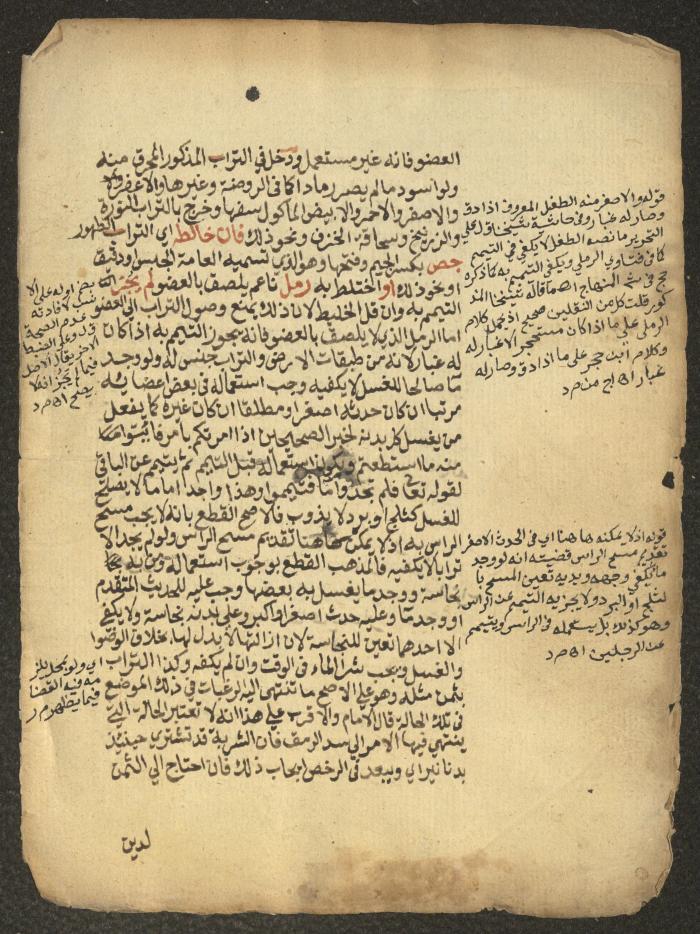 العضو فانه غير مستعمل ودخل في التراب المذكور المحرق منه
ولو اسود ما لم يصر رمادا كما في الروضة وغيرها والاعفر
والاصفر والاحمر والابيض الماكول سفها وخرج بالتراب النورة
والزرنيخ وسحاقة الخزف ونحو ذلك فان خالطه اي التراب الطهور
جص بكسر الجيم وفتحها وهو الذي تسميه العامة الجبس او دقيق
او نحو ذلك او اختلط به رمل ناعم يلصق بالعضو لم يجز
التيمم به وان قل الخليط لان ذلك يمنع وصول التراب الى العضو
اما الرمل الذي لا يلصق بالعضو فانه يجوز التيمم به اذا كان
له غبار لانه من طبقات الارض والتراب جنس له ولو وجد
ما صالحا للغسل لا يكفيه وجب استعماله في بعض اعضائه
مرتبا ان كان حدثه اصغر او مطلقا ان كان غيره كما يفعل
من يغسل كل بدنه لخبر الصحيحين اذا امرتكم بامر فاتوا
منه ما استطعتم ويكون استعماله قبل التيمم ثم يتيمم عن الباقي
لقوله تعالى فلم تجدوا ماء فتيمموا وهذا واجد اما ما لا يصلح
للغسل كثلج او برد لا يذوب فالاصح القطع بانه لا يجب مسح
الراس به اذ لا يمكن هاهنا تقديم مسح الراس ولو لم يجد الا
ترابا لا يكفيه فالمذهب القطع بوجوب استعماله ومن به
نجاسة ووجد ما يغسل به بعضها وجب عليه للحديث المتقدم
او وجد ما وعليه حدث اصغر او اكبر وعلى بدنه نجاسة ولا يكفي
الا احدهما تعين للنجاسة لان ازالتها لا بدل لها بخلاف الوضوا
والغسل ويجب شرا الماء في الوقت وان لم يكفه وكذا التراب
بثمن مثله وهو على الاصح ما تنتهي اليه الرغبات في ذلك الموضع
في تلك الحالة قال الامام والاقرب على هذا انه لا تعتبر الحالة التي
ينتهي فيها الامر الى سد الرمق فان الشربة قد تشتري حينئذ
بدنانير اي ويبعد في الرخص ايجاب ذلك فان احتاج الى الثمن
لدين
قوله والاصفر منه الطفل المعروف اذا دق
وصار له غبار وفي حاشية شيخنا
التحرير ما نصه الطفل لا يكفي في التيمم
كما في فتاوي الرملي ويكفي التيمم به كما ذكره
حج في شرح المنهاج اه ما قاله شيخنا
قلت كل من النقلين صحيح اذ يحمل كلام
الرملي على ما اذا كان مستحجرا لا غبار له
وكلام ابن حجر على ما اذا دق وصار له
غبار اه
قوله اذ لا يمكنه هاهنا اي في الحدث الاصغر
تقديم مسح الراس قضيته انه لو وجد
ما يكفي وجهه ويديه تعين المسح با
لثلج او البرد ولا يجزيه التيمم عن الراس
وهو كذلك بل يستعمله في الراس ويتيمم
عن الرجلين اه
عدم الصحة
يصح اه
اي ولو بحل يلز
مه فيه القضا
فيما يظهر م ر